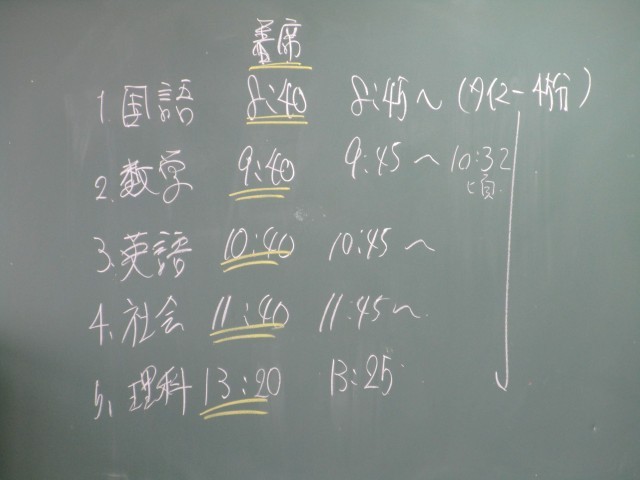 着席
1. 国語 8:40 8:45〜
2. 数学 9:40 9:45〜10:32
頃
3. 英語 10:40 10:45〜
4. 社会 11:40 11:45〜
5. 理科 13:20 13:25